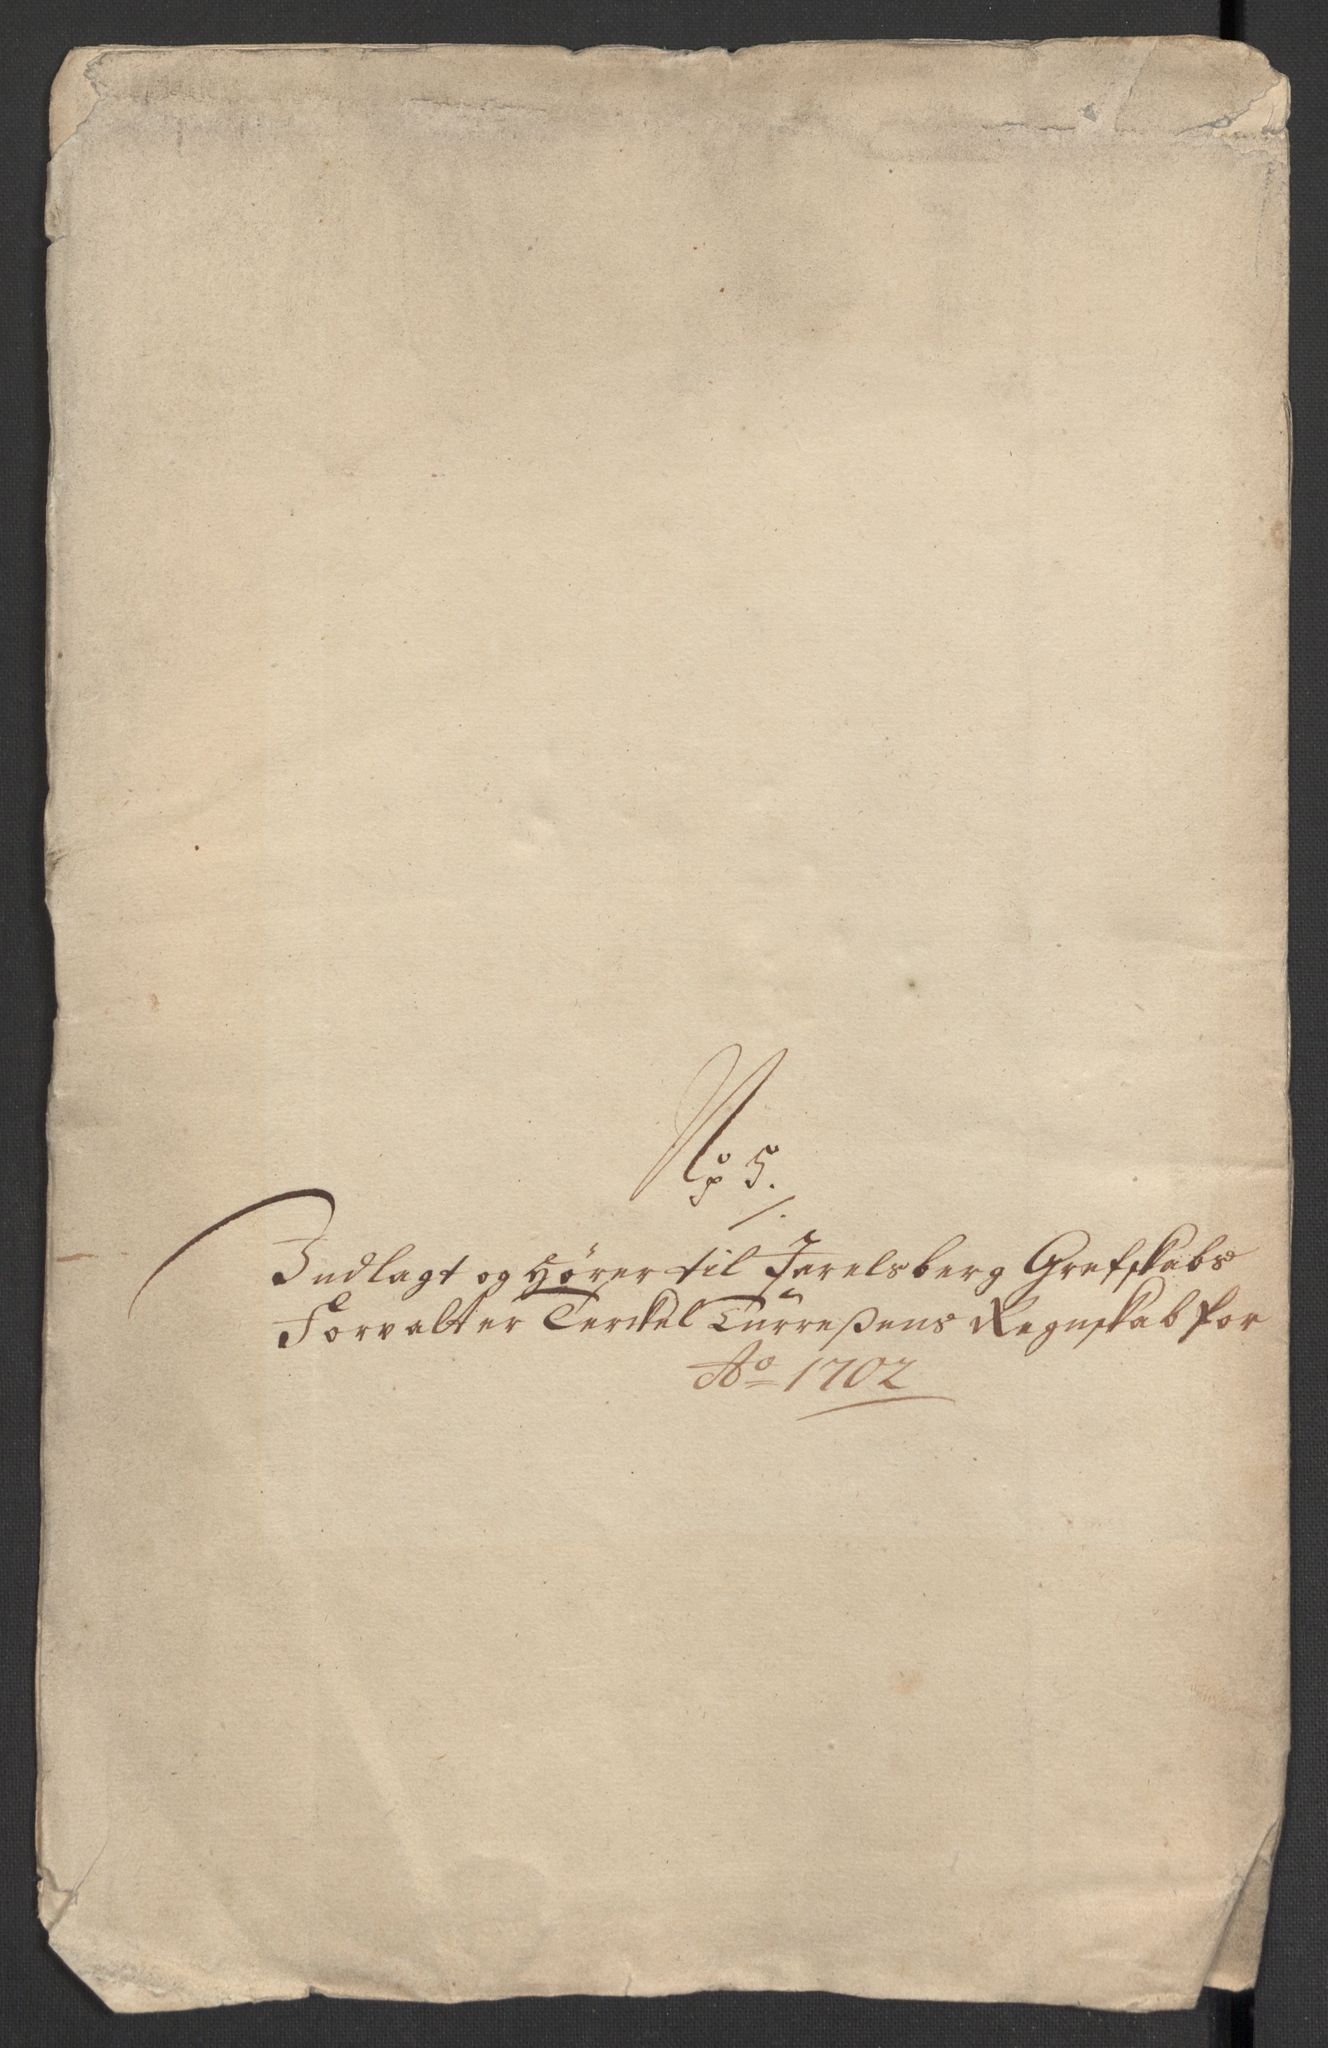 No 5.
Indlagt og hører til Jarelsberg Grefskabs
Forvalter Terckel Turreßens Regnskab for
Ao 1702